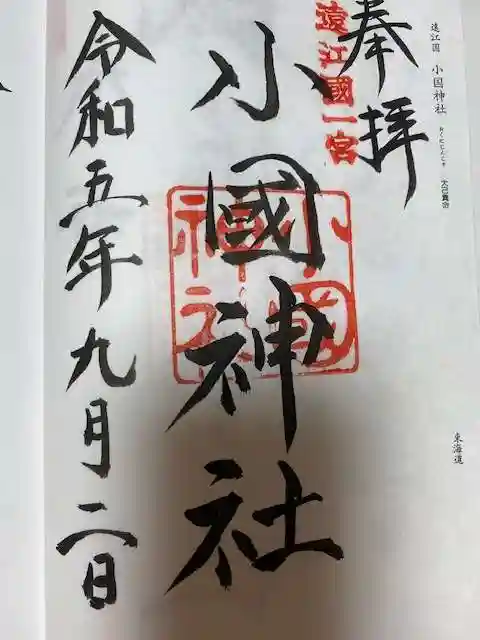 遠江国 小国神社 おくにじんじゃ 大己貴命
東海道
奉拝
遠江國一宮
小國神社
小國神社
令和五年九月二日